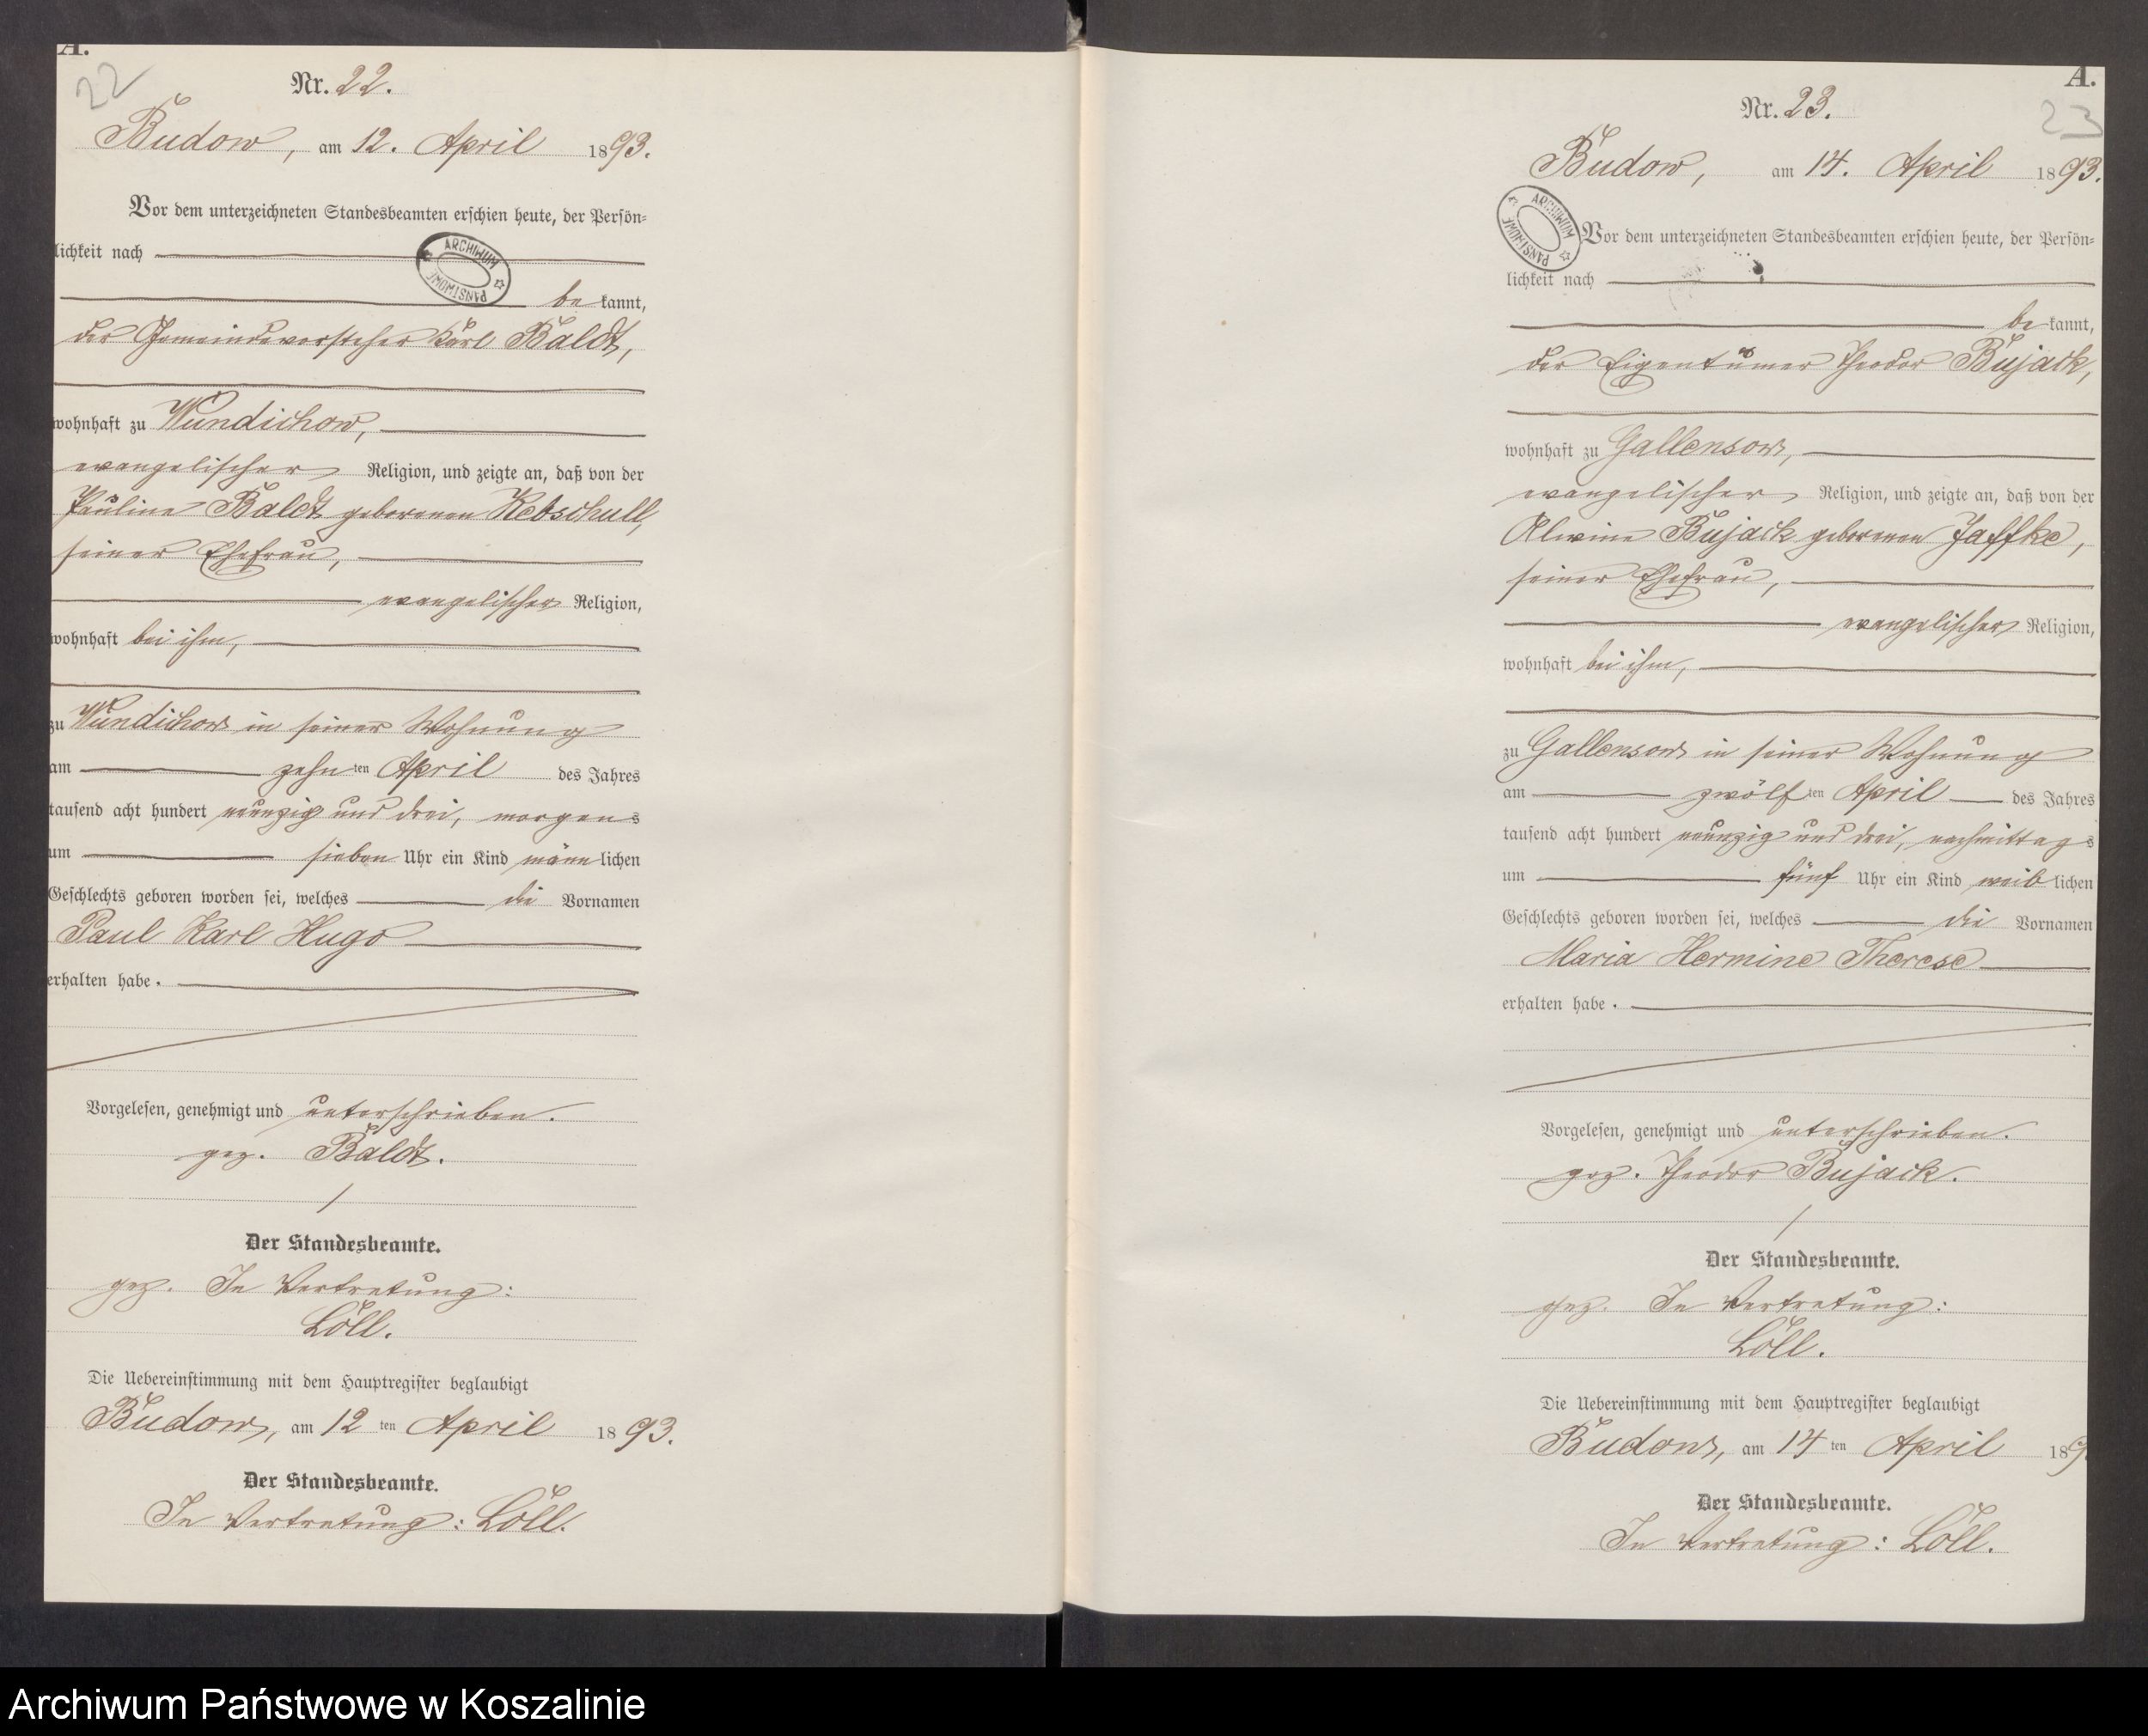 A.
22
Nr. 22.
Budow, am 12. April 1893.
Vor dem unterzeichneten Standesbeamten erschien heute, der Persön-
lichkeit nach
ARCHIWUM PAŃSTWOWE
be kannt,
der Gemeindevorsteher Karl Baldt,
wohnhaft zu Wundichow,
evangelischer Religion, und zeigte an, daß von der
Pauline Baldt geborenen Rebschull,
seiner Ehefrau,
evangelischer Religion,
wohnhaft bei ihm,
zu Wundichow in seiner Wohnung
am zehn ten April des Jahres
tausend acht hundert neunzig und drei, morgens
um sieben Uhr ein Kind männ lichen
Geschlechts geboren worden sei, welches die Vornamen
Paul Karl Hugo
erhalten habe.
Vorgelesen, genehmigt und unterschrieben.
gez. Baldt.
Der Standesbeamte.
gez. In Vertretung:
Löll.
Die Uebereinstimmung mit dem Hauptregister beglaubigt
Budow, am 12 ten April 1893.
Der Standesbeamte.
In Vertretung: Löll.
A.
23
Nr. 23.
Budow, am 14. April 1893.
ARCHIWUM PAŃSTWOWE
Vor dem unterzeichneten Standesbeamten erschien heute, der Persön-
lichkeit nach
be kannt,
der Eigentümer Theodor Bujack,
wohnhaft zu Gallensow,
evangelischer Religion, und zeigte an, daß von der
Alwine Bujack geborenen Jaffke,
seiner Ehefrau,
evangelischer Religion,
wohnhaft bei ihm,
zu Gallensow in seiner Wohnung
am zwölf ten April des Jahres
tausend acht hundert neunzig und drei, nachmittags
um fünf Uhr ein Kind weib lichen
Geschlechts geboren worden sei, welches die Vornamen
Maria Hermine Therese
erhalten habe.
Vorgelesen, genehmigt und unterschrieben.
gez. Theodor Bujack.
Der Standesbeamte.
gez. In Vertretung:
Löll.
Die Uebereinstimmung mit dem Hauptregister beglaubigt
Budow, am 14 ten April 189
Der Standesbeamte.
In Vertretung: Löll.
Archiwum Państwowe w Koszalinie